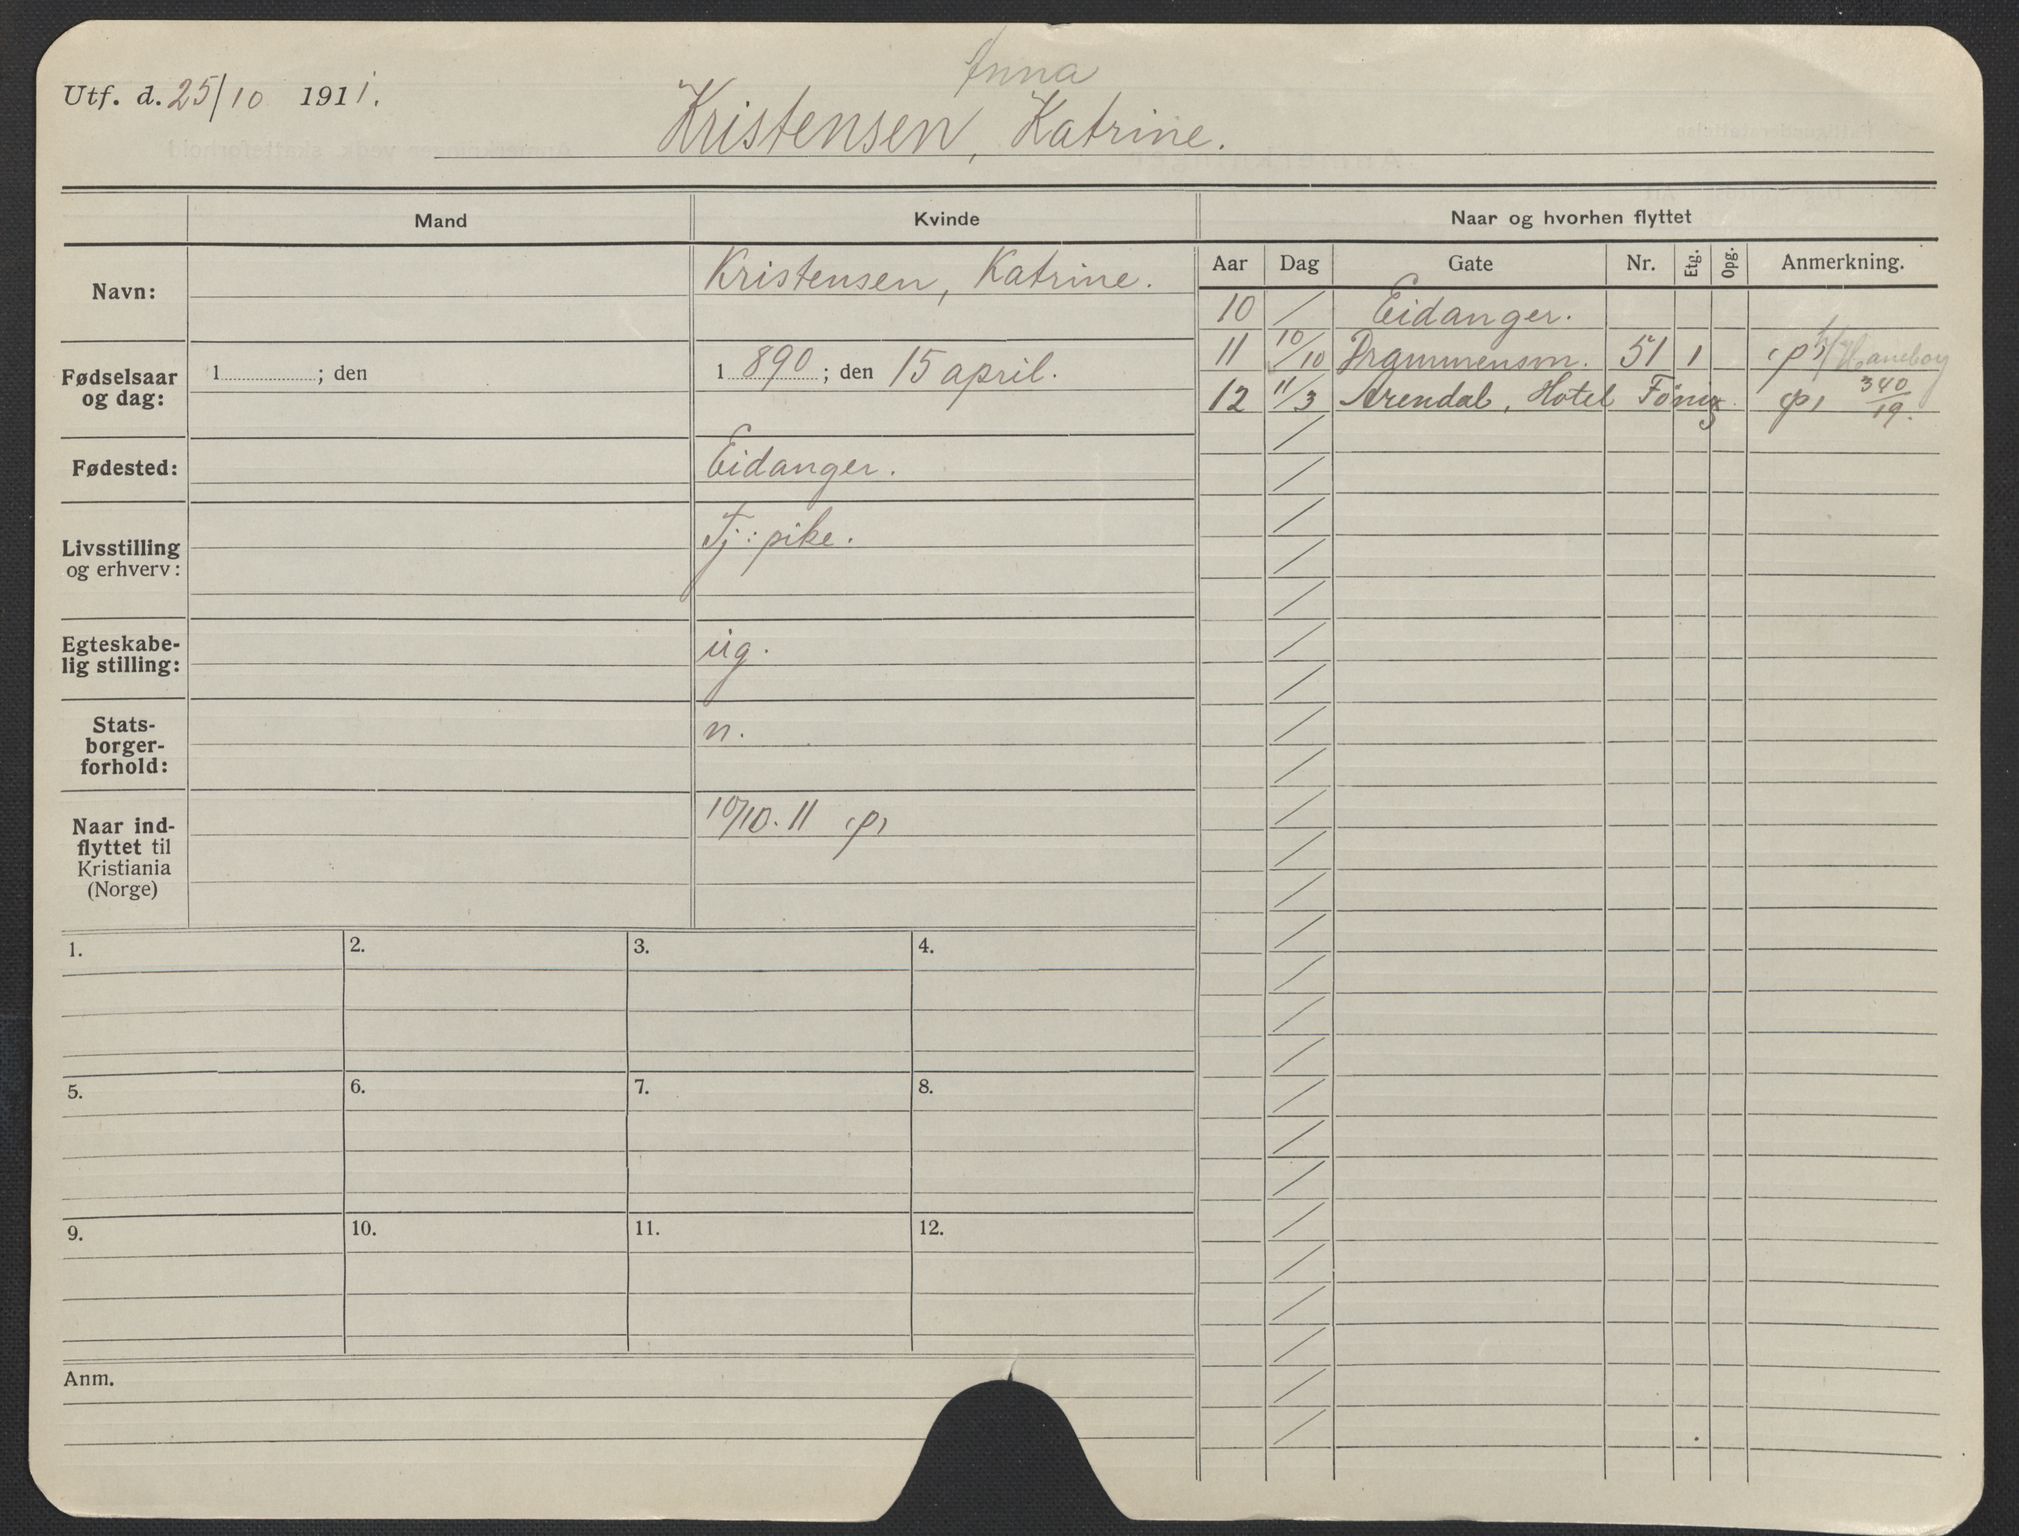 Utf. d. 25/10 1911.
Anna
Kristensen, Katrine.
Mand
Kvinde
Naar og hvorhen flyttet
Aar Dag Gate Nr. Etg. Opg. Anmerkning.
Navn:
Kristensen, Katrine.
10 / Eidanger.
11 10/10 Drammensvn. 51 1 (p)
12 11/3 Arendal, Hotel Fønix (p) 340/19.
Fødselsaar
og dag:
1 ; den
1 890 ; den 15 april.
Fødested:
Eidanger.
Livsstilling
og erhverv:
Tj: pike.
Egteskabe-
lig stilling:
ug.
Stats-
borger-
forhold:
n.
Naar ind-
flyttet til
Kristiania
(Norge)
10/10. 11 (p)
1. 2. 3. 4.
5. 6. 7. 8.
9. 10. 11. 12.
Anm.